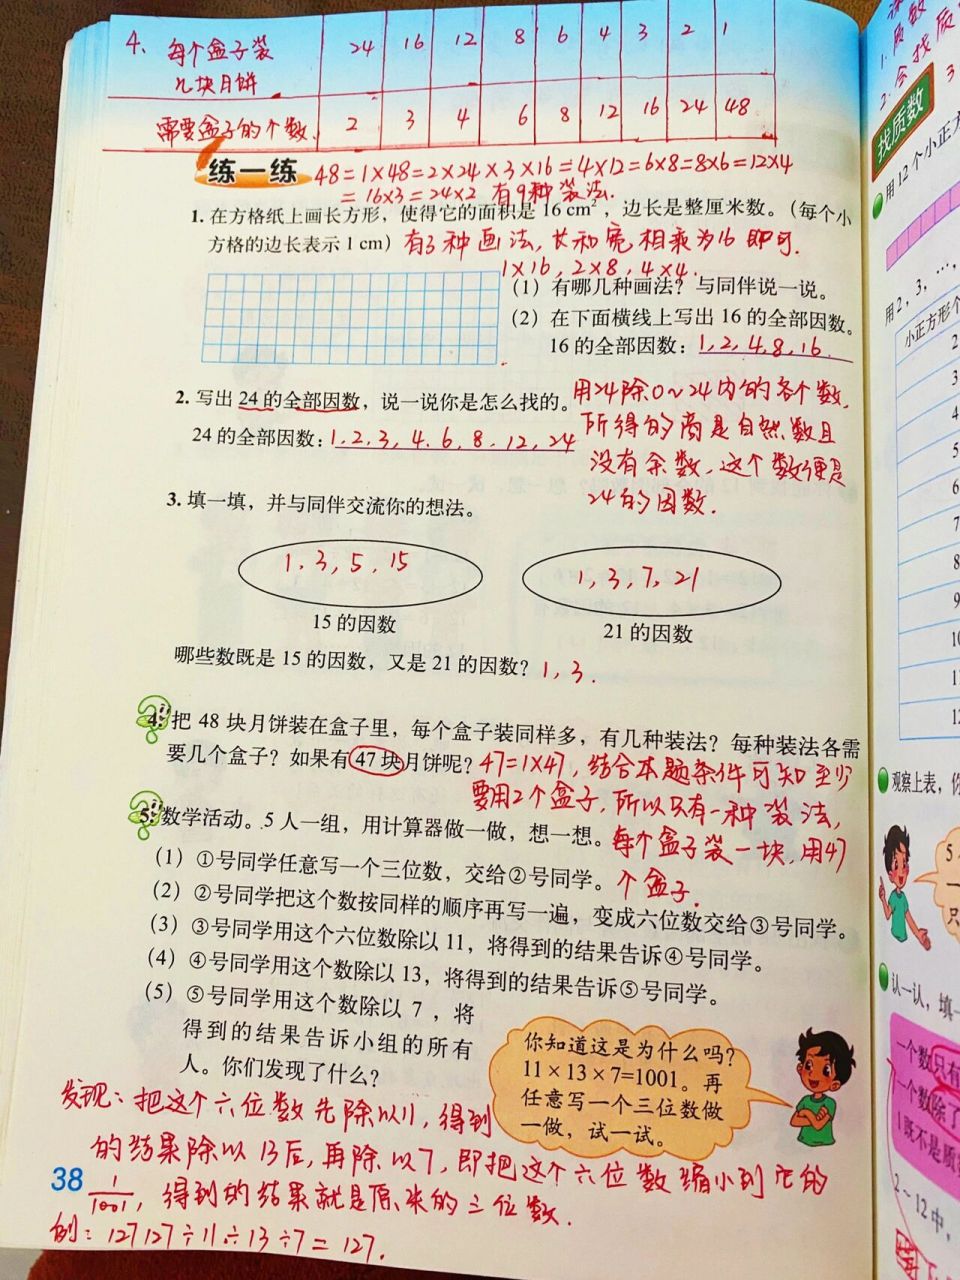 4、每个盒子装 24 16 12 8 6 4 3 2 1
几块月饼
需要盒子的个数 2 3 4 6 8 12 16 24 48
练一练
48=1×48=2×24×3×16=4×12=6×8=8×6=12×4
=16×3=24×2 有9种装法.
1. 在方格纸上画长方形，使得它的面积是 16 cm²，边长是整厘米数。（每个小
方格的边长表示 1 cm）有3种画法,长和宽相乘为16即可.
1×16,2×8,4×4.
（1）有哪几种画法？与同伴说一说。
（2）在下面横线上写出 16 的全部因数。
16 的全部因数：1,2,4,8,16
2. 写出 24 的全部因数，说一说你是怎么找的。用24除0~24内的各个数,
24 的全部因数：1,2,3,4.6,8.12,24
所得的商是自然数且
没有余数,这个数便是
24的因数.
3. 填一填，并与同伴交流你的想法。
1,3,5,15
1,3,7,21
15 的因数
21 的因数
哪些数既是 15 的因数，又是 21 的因数？1,3.
4. 把 48 块月饼装在盒子里，每个盒子装同样多，有几种装法？每种装法各需
要几个盒子？如果有 47 块月饼呢？47=1×47,结合本题条件可知至少
要用2个盒子,所以只有一种装法,
5. 数学活动。5 人一组，用计算器做一做，想一想。每个盒子装一块,用47
个盒子.
（1）①号同学任意写一个三位数，交给②号同学。
（2）②号同学把这个数按同样的顺序再写一遍，变成六位数交给③号同学。
（3）③号同学用这个六位数除以 11，将得到的结果告诉④号同学。
（4）④号同学用这个数除以 13，将得到的结果告诉⑤号同学。
（5）⑤号同学用这个数除以 7，将
得到的结果告诉小组的所有
人。你们发现了什么？
你知道这是为什么吗？
11×13×7=1001。再
任意写一个三位数做
一做，试一试。
发现：把这个六位数先除以11,得到
的结果除以13后,再除以7,即把这个六位数缩小到它的
1/1001,得到的结果就是原来的三位数.
例：127127÷11÷13÷7=127.
38
找质数
用 12 个小正方
用 2，3，…，
小正方形个
2
3
4
5
6
7
8
9
10
11
12
观察上表，你
认一认，填一
一个数只有
一个数除了
1 既不是质数
2～12 中，